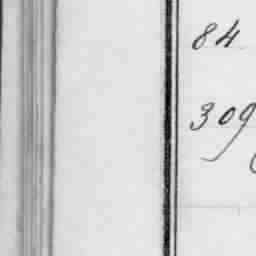 84
309